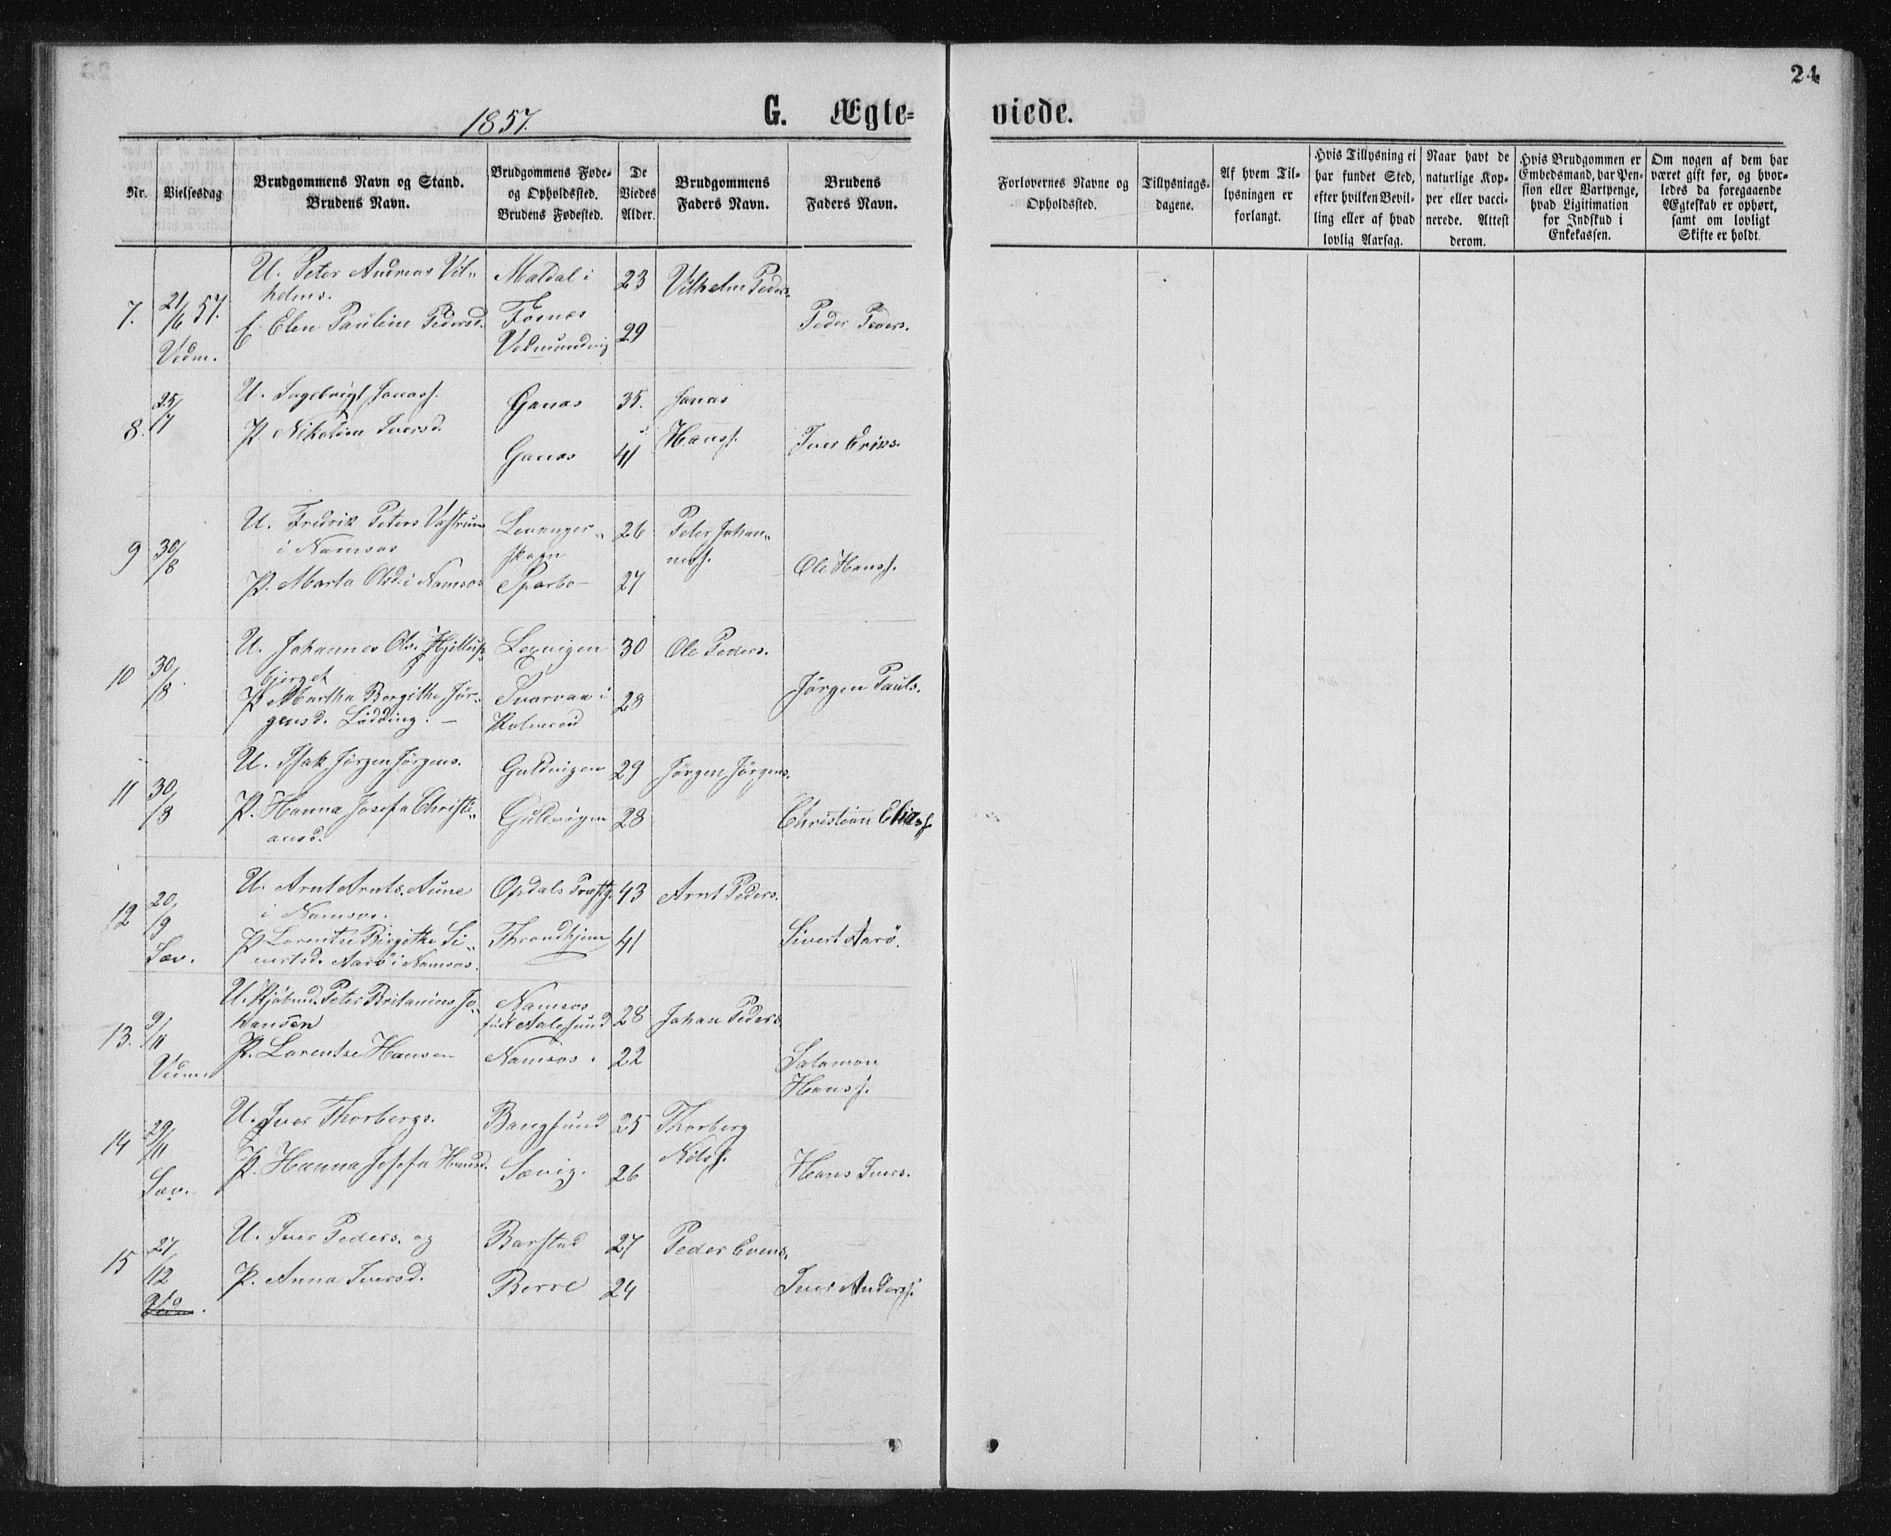 24
1857.
G. Ægte=
viede.
Nr.
Vielsesdag
Brudgommens Navn og Stand.
Brudens Navn.
Brudgommens Føde=
og Opholdssted.
Brudens Fødested.
De
Viedes
Alder.
Brudgommens
Faders Navn.
Brudens
Faders Navn.
Forlovernes Navne og
Opholdssted.
Tillysnings-
dagene.
Af hvem Til-
lysningen er
forlangt.
Hvis Tillysning ei
har fundet Sted,
efter hvilken Bevil-
ling eller af hvad
lovlig Aarsag.
Naar havt de
naturlige Kop-
per eller vacci-
nerede. Attest
derom.
Hvis Brudgommen er
Embedsmand, har Pen-
sion eller Vartpenge,
hvad Ligitimation
for Indskud i
Enkekassen.
Om nogen af dem har
været gift før, og hvor-
ledes da foregaaende
Ægteskab er ophørt,
samt om lovligt
Skifte er holdt.
7.
21/6 57.
Vedm.
U. Peter Andreas Vil„
helms.
Elen Pauline Pedersd.
Maldal i
Fosnes
23
29
Vilhelm Peders.
Peder Peders.
8.
25/7
U. Ingebrigt Jonass.
P. Nikoline Iversd.
Ganæs
Ganæs
35.
41
Jonas
Hanss.
Iver Eriks.
9
30/8
U. Fredrik Peters
i Namsos
P. Marta Olsd. i Namsos
Levanger„
skogn
Sparbo
26
27
Peter Johan„
ness.
Ole Hanss.
10
30/8.
U. Johannes Ols.
bjerget
P. Martha Bergithe Jør„
gensd. Lødding.
Lexvigen
i
30
28
Ole Peders.
Jørgen Pauls.
11
30/8
U. Isak Jørgen Jørgens.
P. Hanna Josefa Christi„
ansd.
Guldvigen
Guldvigen
29
28
Jørgen Jørgens.
Christian Eliass
12
20/9
Sæv.
U. Arnt Arnts. Aune
i Namsos.
P. Lorentse Birgithe Si„
vertsd. Aarø i Namsos.
Opdals Præstg.
Throndhjem
43
41
Arnt Peders.
Sivert Aarø.
13.
9/11
Vedm.
U. Kjøbmd. Peter Britanius Jo„
hansen
P. Lorentse Hansen
Namsos
født Aalesund
Namsos.
28
22
Johan Peders.
Salamon
Hanss.
14
29/11
Sæv.
U. Iver Thorbergs.
P. Hanna Josefa Hansd.
Bangsund
Sævig.
25
26
Thorberg
Nilss.
Hans Ivers.
15
27/12
U. Iver Peders. og
P. Anna Iversd.
Barstad
Berre
27
24
Peder Evens.
Iver Anderss.